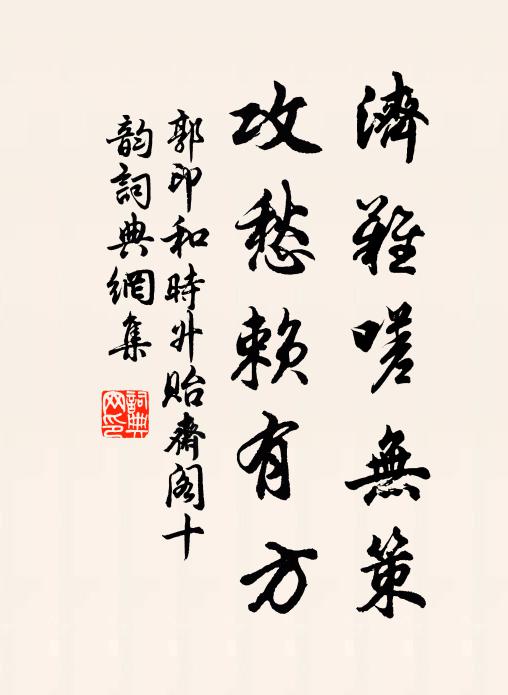 濟難嗟無策
攻愁賴有方
郭印和時升貽齋閣十
韵詞典網集
詞典网印